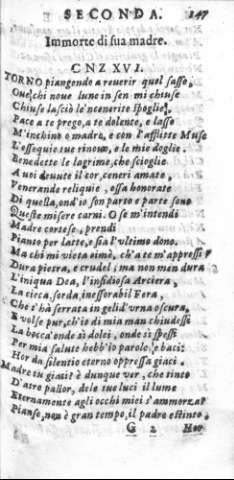 SECONDA. 147
In morte di sua madre.
CNZ XVI.
TORNO piangendo a reuerir quel sasso,
Oue, chi noue lune in sen mi chiuse
Chiuse lasciò le 'ncenerite spoglie,
Pace a te prego, a te dolente, e lasso
M'inchino o madre, e con l'afflitte Muse
L'essequie tue rinouo, e le mie doglie.
Benedette le lagrime, che scioglie
A uoi deuute il cor, ceneri amate,
Venerande reliquie, ossa honorate
Di quella, ond'io son parto e parte sono
Queste misere carni. O se m'intendi
Madre cortese, prendi
Pianto per latte, e sia l'ultimo dono.
Ma chi mi vieta oimè, ch'a te m'appressi
Dura pietra, e crudel; ma non men dura
L'iniqua Dea, l'insidiosa Arciera,
La cieca, sorda, inessorabil Fera,
Che s'hà serrata in gelid'vrna oscura,
E volse pur, ch'io di mia man chiudessi
La bocca, onde sì dolci, onde sì spessi
Per mia salute hebb'io parole, e baci:
Hor da silentio eterno oppressa giaci
Madre tu giaci: è dunque ver, che tinto
D'atro pallor, dele tue luci il lume
Eternamente agli occhi miei s'ammorza?
Pianse, non è gran tempo, il padre estinto
G 2 Hor